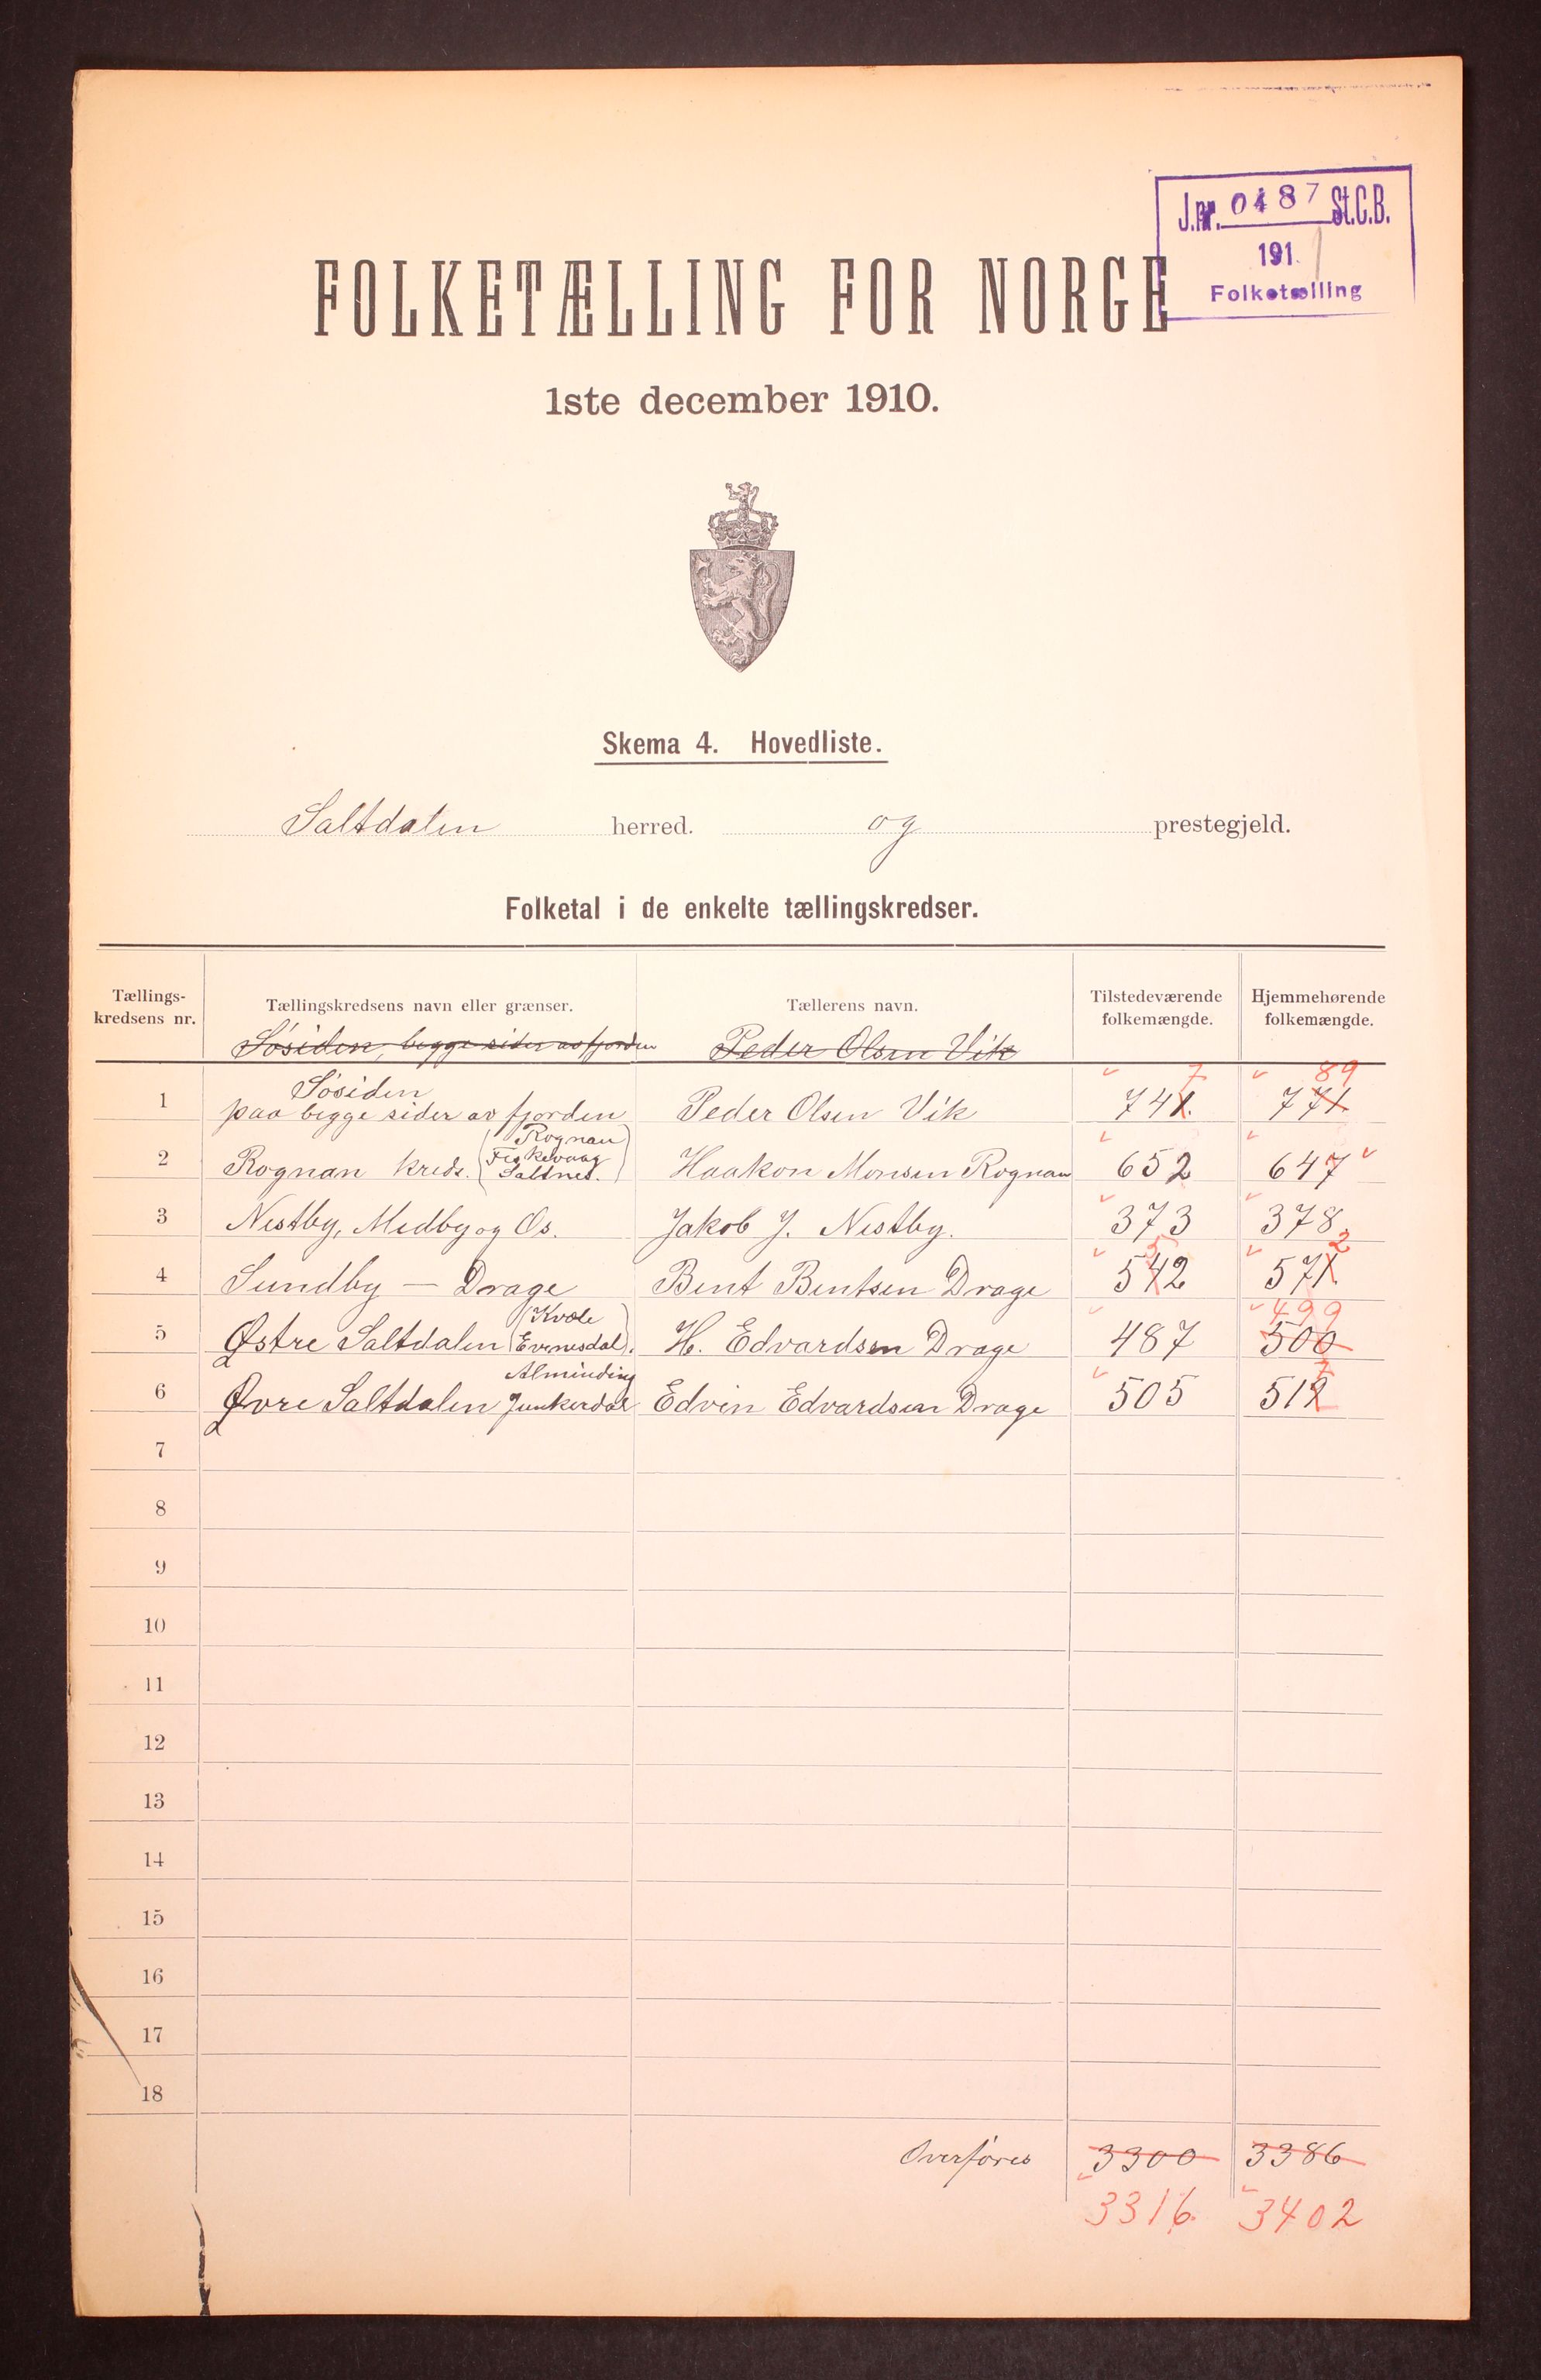 J.nr. 0487 St.C.B.
1911
Folketælling
FOLKETÆLLING FOR NORGE
1ste december 1910.
Skema 4. Hovedliste.
Saltdalen herred. og prestegjeld.
Folketal i de enkelte tællingskredser.
Tællings-kredsens nr. Tællingskredsens navn eller grænser. Tællerens navn. Tilstedeværende folkemængde. Hjemmehørende folkemængde.
Søsiden, begge sider av fjorden Peder Olsen Vik
7 89
1 Søsiden paa begge sider av fjorden Peder Olsen Vik 741. 771
2 Rognan kreds. (Rognan Fiskevaag Saltnes.) Haakon Monsen Rognan 652 647
3 Nestby, Medby og Os. Jakob J. Nestby. 373 378
5 2
4 Sundby — Drage Bent Bentsen Drage 542 571
499
5 Østre Saltdalen (Kvæle Evenesdal). H. Edvardsen Drage 487 500
7
6 Øvre Saltdalen Alminding Junkerdal Edvin Edvardsen Drage 505 512
7
8
9
10
11
12
13
14
15
16
17
18
Overføres 3300 3386
3316. 3402